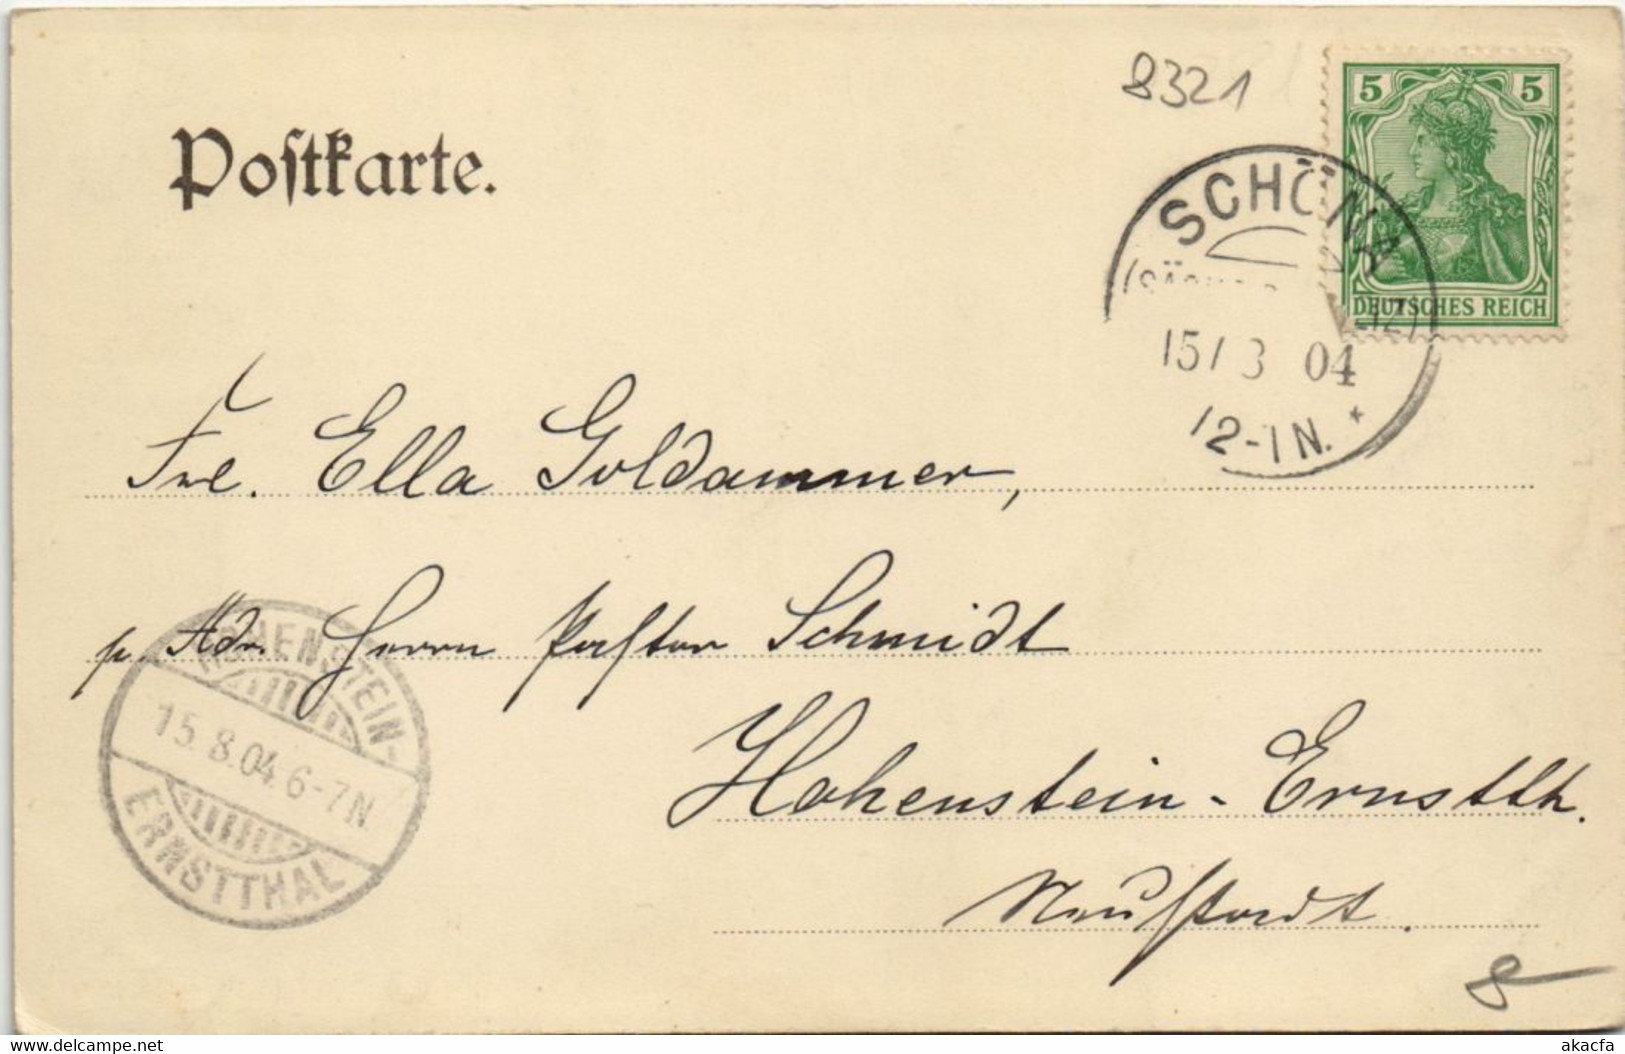 8321
5 5
DEUTSCHES REICH
Postkarte.
SCHÖNA
15/ 3 04
12-1N. *
Frl. Ella Goldammer,
p. Adr. Herrn Pastor Schmidt
Hohenstein-Ernstth.
Neustadt.
HOHENSTEIN-
15.8.04. 6-7N
ERNSTTHAL
8
akacfa